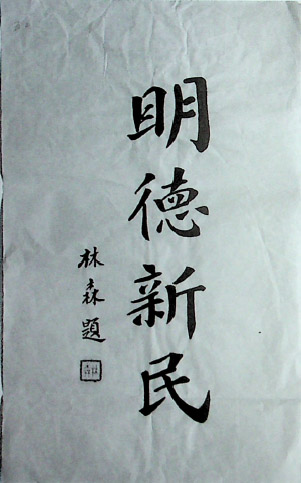 明德新民
林森題